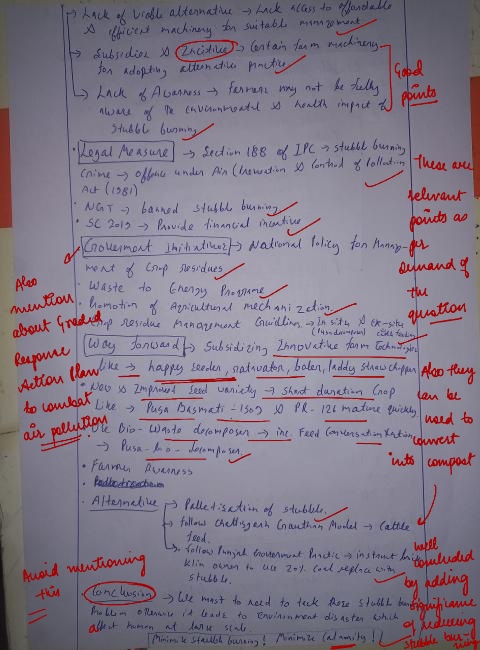 → Lack of viable alternative → Lack access to affordable
& efficient machinery for suitable management
→ Subsidies & Incitive → Certain farm machinery
for adopting alternative practice
→ Lack of Awarness → farmers may not be fully
aware of the environmental & health impact of
stubble burning
Good
points
• Legal Measure → Section 188 of IPC → stubble burning
Crime → offence under Air (Prevention & Control of Pollution
Act (1981)
• NGT → banned stubble burning
• SC 2019 → Provide financial incentive
These are
relevant
points as
per
demand of
the
question
• Goverment Initiatives → National Policy for Manag-
ment of Crop Residues
• Waste to Energy Programe
• Promotion of Agricultural mechanization
• Crop residue Management Guidlines → In situ & ex-situ
Also
mention
about Graded
Response
Action Plan
to combat
air pollution
Way forward → Subsidizing Innovative farm Technologies
like → happy seeder, rotavator, baler, Paddy straw chopper
• New & Improved seed variety → short duration Crop
Like → Pusa Basmati-1509 & PR-126 mature quickly
• Use Bio-Waste decomposer → inc. Feed Conversation Ration
→ Pusa-bio-decomposer
• Farmer Awarness
• Alternative → Palletisation of stubble.
→ follow Chattisgarh Gauthan Model → Cattle
feed.
→ follow Punjab Government Practic → instruct brick
Klin owner to use 20% coal replace with
stubble.
Also they
can be
used to
convert
into compost
Avoid mentioning
this
Conclusion → We must to need to tack these stubble burning
Problem otherwise it leads to Environment disaster which
affect human at large scale
Minimize stubble burning! Minimize calamity!
well
concluded
by adding
significance
of reducing
stubble bur-
ning